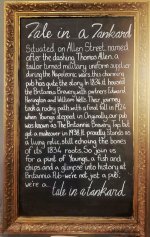 Tale in a Tankard
Situated on Allen Street, named
after the dashing Thomas Allen, a
tailor turned military uniform supplier
during the Napoleonic wars, this charming
pub has quite the story. In 1834 it housed
the Britannia Brewery, with partners Edward
Herington and William Wells. Their journey
took a rocky path with a final fall in 1924
when Youngs stepped in. Originally our pub
was known as The Britannia Brewery Tap but
got a makeover in 1938. It proudly stands as
a living relic, still echoing the bones
of its 1834 roots. So join us
for a pint of Youngs, a fish and
chips, and a glimpse into history at
Britannia. We're not just a pub,
we're a tale in a tankard.